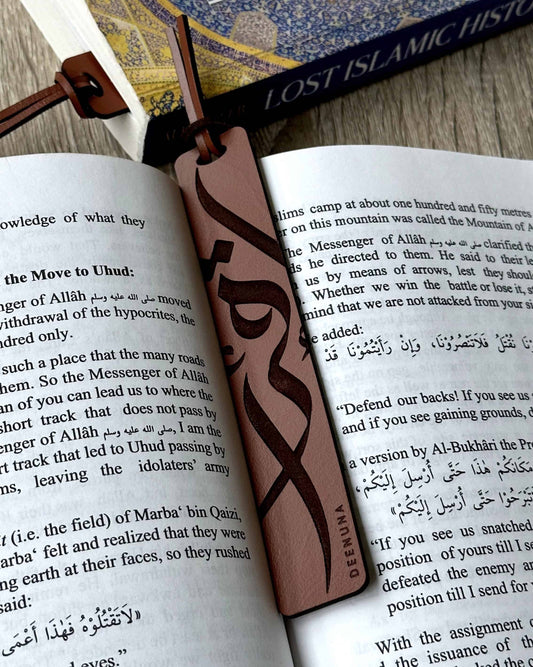 LOST ISLAMIC HISTO
owledge of what they
the Move to Uhud:
enger of Allâh صلى الله عليه وسلم moved
withdrawal of the hypocrites, the
ndred only.
such a place that the many roads
hem. So the Messenger of Allâh
an of you can lead us to where the
short track that does not pass by
enger of Allâh صلى الله عليه وسلم, I am the
rt track that led to Uhud passing by
ms, leaving the idolaters' army
t (i.e. the field) of Marba‘ bin Qaizi,
arba‘ felt and realized that they were
ng earth at their faces, so they rushed
said:
«لاَ تَقْتُلُوْهُ فَهٰذَا أَعْمَى
d eyes.”
DEENUNA
slims camp at about one hundred and fifty metres
er on this mountain was called the Mountain of A
he Messenger of Allâh صلى الله عليه وسلم clarified th
ds he directed to them. He said to their le
us by means of arrows, lest they shoul
. Whether we win the battle or lose it, s
mind that we are not attacked from your si
e added:
نَا نُقْتَلُ فَلاَ تَنْصُرُوْنَا، وَإِنْ رَأَيْتُمُوْنَا قَدْ
“Defend our backs! If you see us
and if you see gaining grounds, d
a version by Al-Bukhâri the Pro
مَكَانَكُمْ هٰذَا حَتَّى أُرْسِلَ إِلَيْكُمْ،
تَبْرَحُوْا حَتَّى أُرْسِلَ إِلَيْكُمْ»
“If you see us snatched
position of yours till I se
defeated the enemy an
position till I send for
With the assignment o
the issuance of the